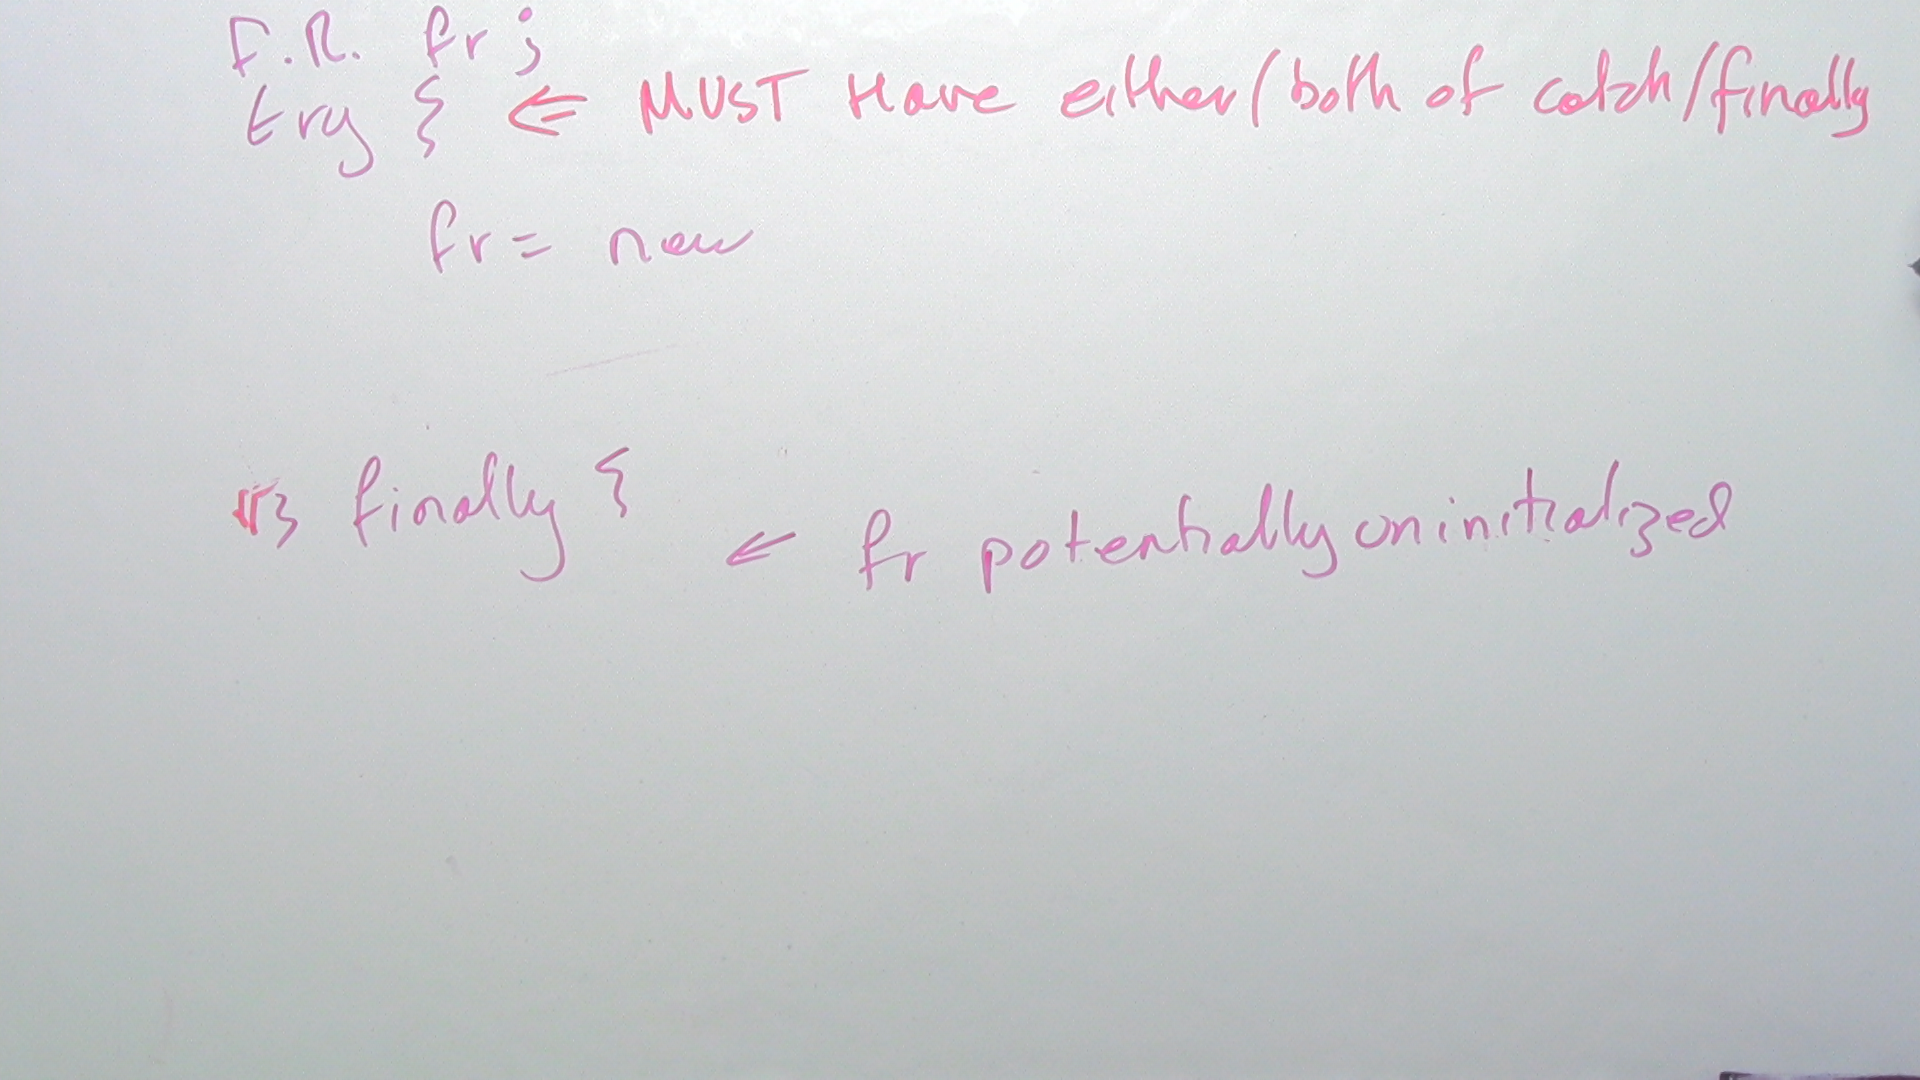 F.R. fr;
try { ⇐ MUST Have either/both of catch/finally
fr = new
} finally {
⇐ fr potentially uninitialized